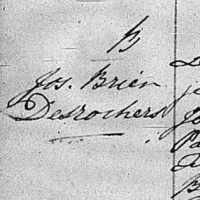 B
Jos. Brien
Desrochers